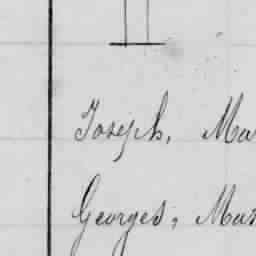 Joseph, Ma
Georges, Mar